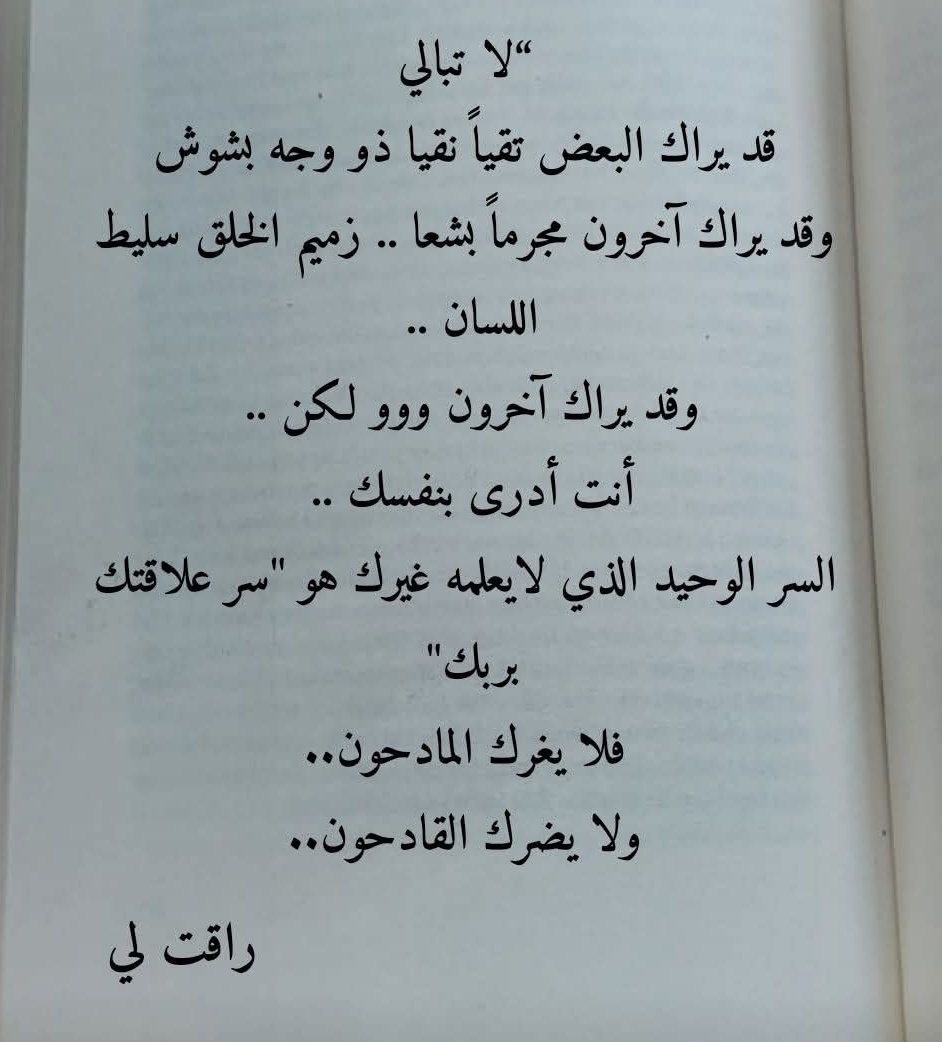 “لا تبالي
قد يراك البعض تقياً نقيا ذو وجه بشوش
وقد يراك آخرون مجرماً بشعا .. زميم الخلق سليط
اللسان ..
وقد يراك آخرون ووو لكن ..
أنت أدرى بنفسك ..
السر الوحيد الذي لايعلمه غيرك هو "سر علاقتك
بربك"
فلا يغرك المادحون..
ولا يضرك القادحون..
راقت لي